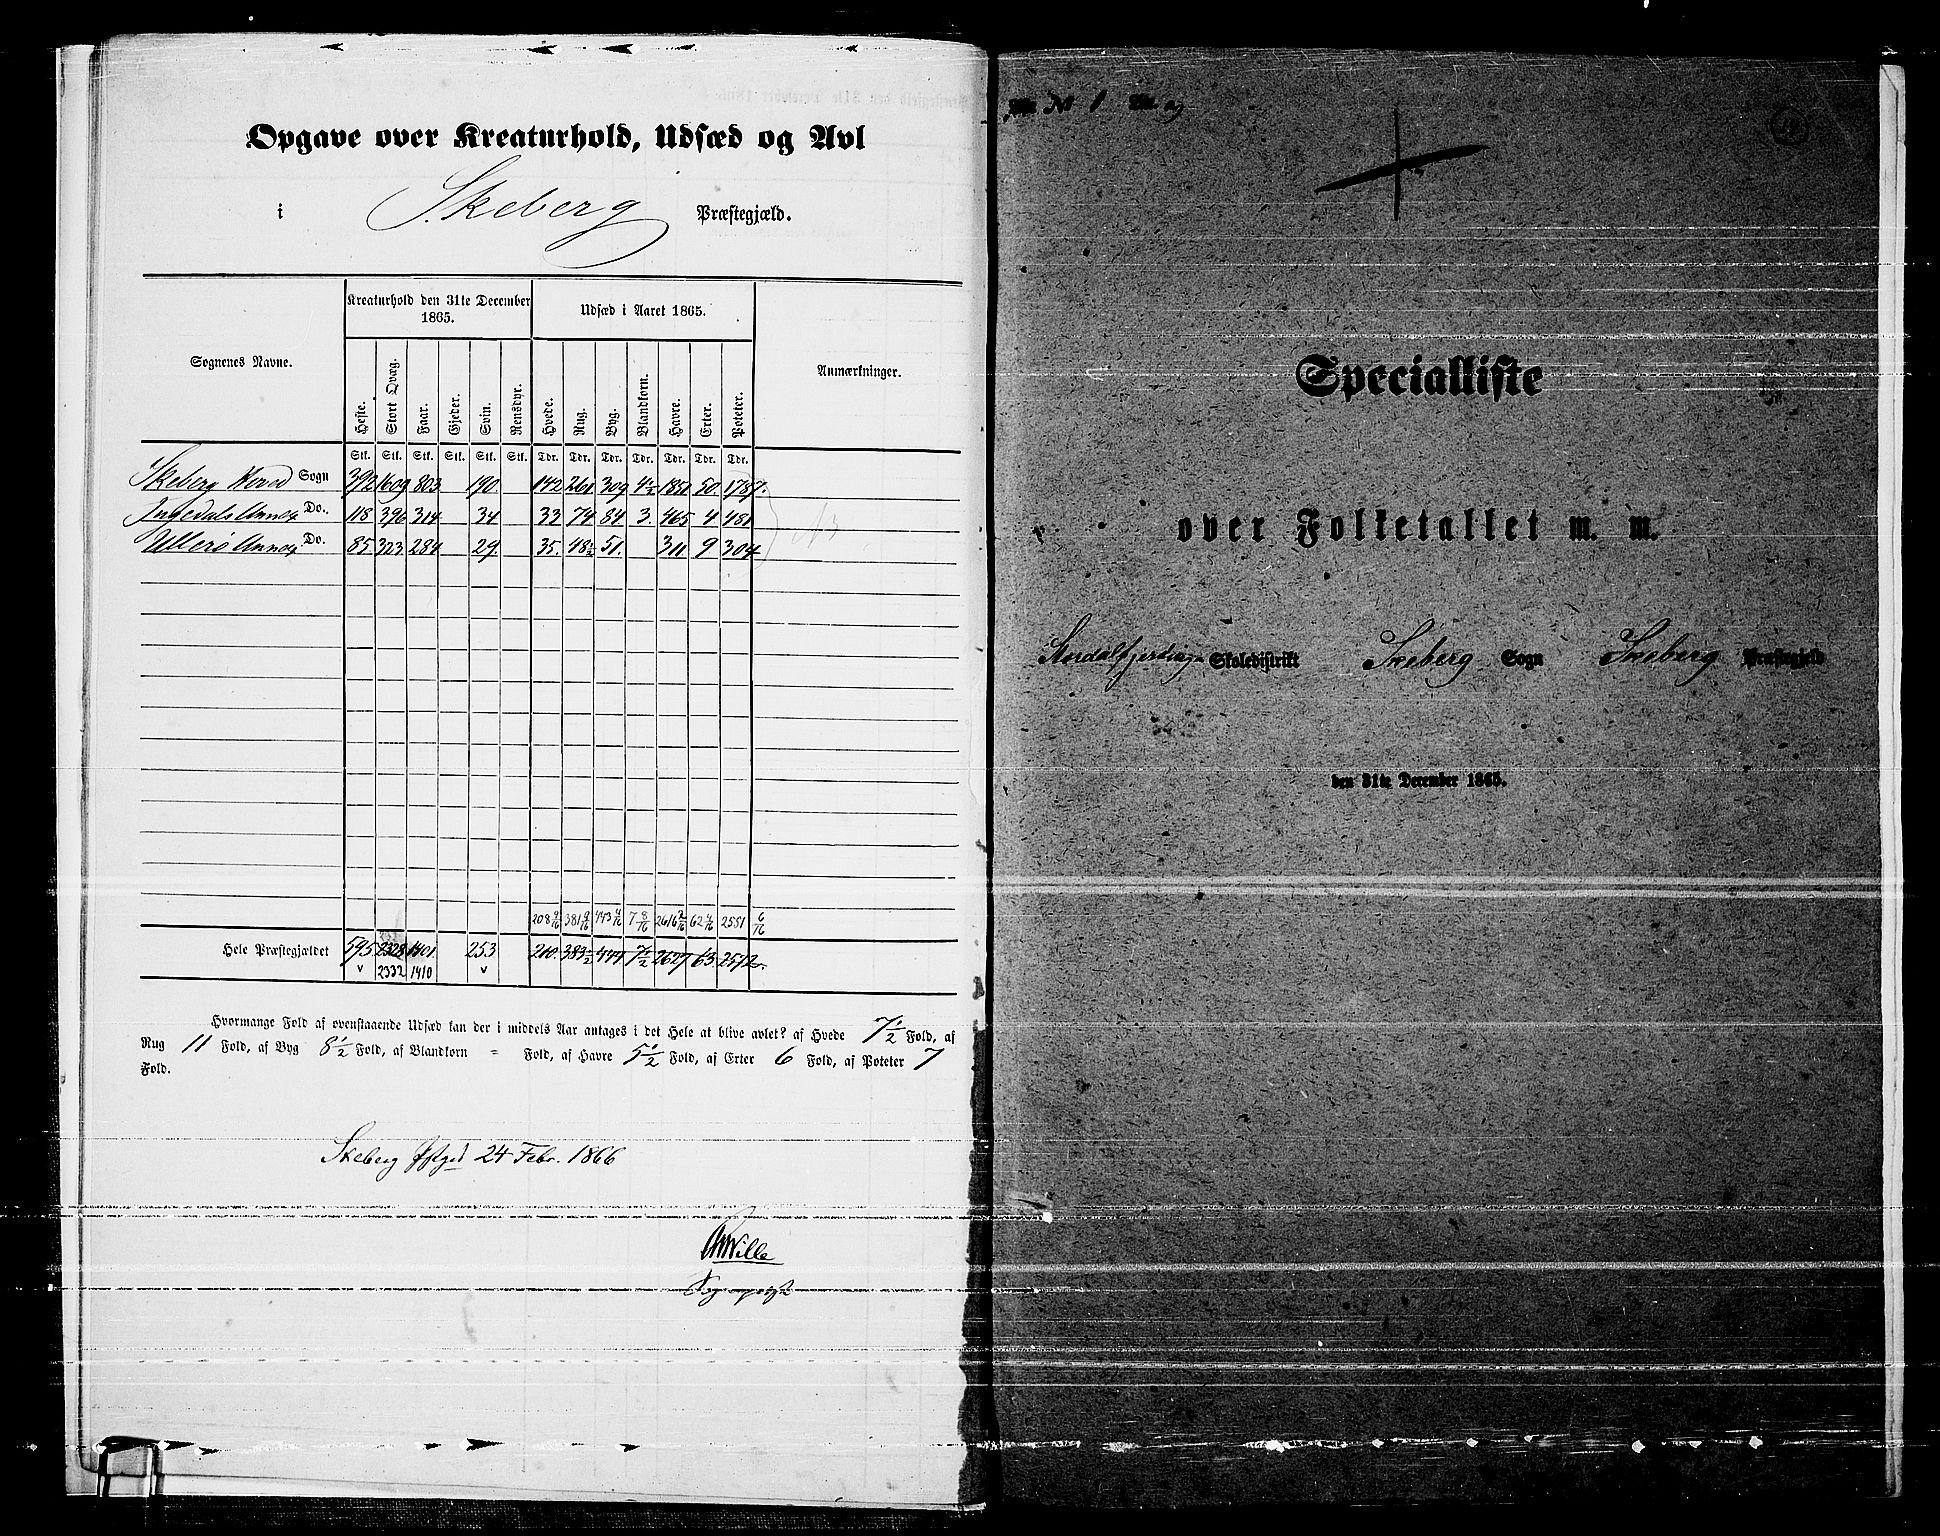 Opgave over Kreaturhold, Udsæd og Avl
i Skeberg Præstegjæld.
Sognenes Navne.
Kreaturhold den 31te December 1865.
Udsæd i Aaret 1865.
Anmærkninger.
Heste. Stort Qvæg. Faar. Gjeder. Svin. Rensdyr. Hvede. Rug. Byg. Blandkorn. Havre. Erter. Poteter.
Stk. Stk. Stk. Stk. Stk. Stk. Tdr. Tdr. Tdr. Tdr. Tdr. Tdr. Tdr.
Skeberg Hoved Sogn 392 1609 803 190 142 261 309 4½ 1851 50 1787.
Ingedals Annex Do. 118 396 314 34 33 74 84 3. 465 4 481
Ullerø Annex Do. 85 323 284 29 35. 48½ 51. 311 9 304
208 9/16 381 9/16 443 4/16 7 8/16 2616 2/16 62 4/16 2551 6/16
Hele Præstegjældet 595 2328 1401 253 210. 383½ 444 7½ 2627 63. 2572.
2332 1410
Hvormange Fold af ovenstaaende Udsæd kan der i middels Aar antages i det Hele at blive avlet? af Hvede 7½ Fold, af
Rug 11 Fold, af Byg 8½ Fold, af Blandkorn = Fold, af Havre 5½ Fold, af Erter 6 Fold, af Poteter 7
Fold.
Skeberg Pstgd 24 Febr. 1866
Wille
Sognepræst
No 1
Specialliste
over Folketallet m. m.
Skoledistrikt Skeberg Sogn Skeberg Præstegjeld
den 31te December 1865.